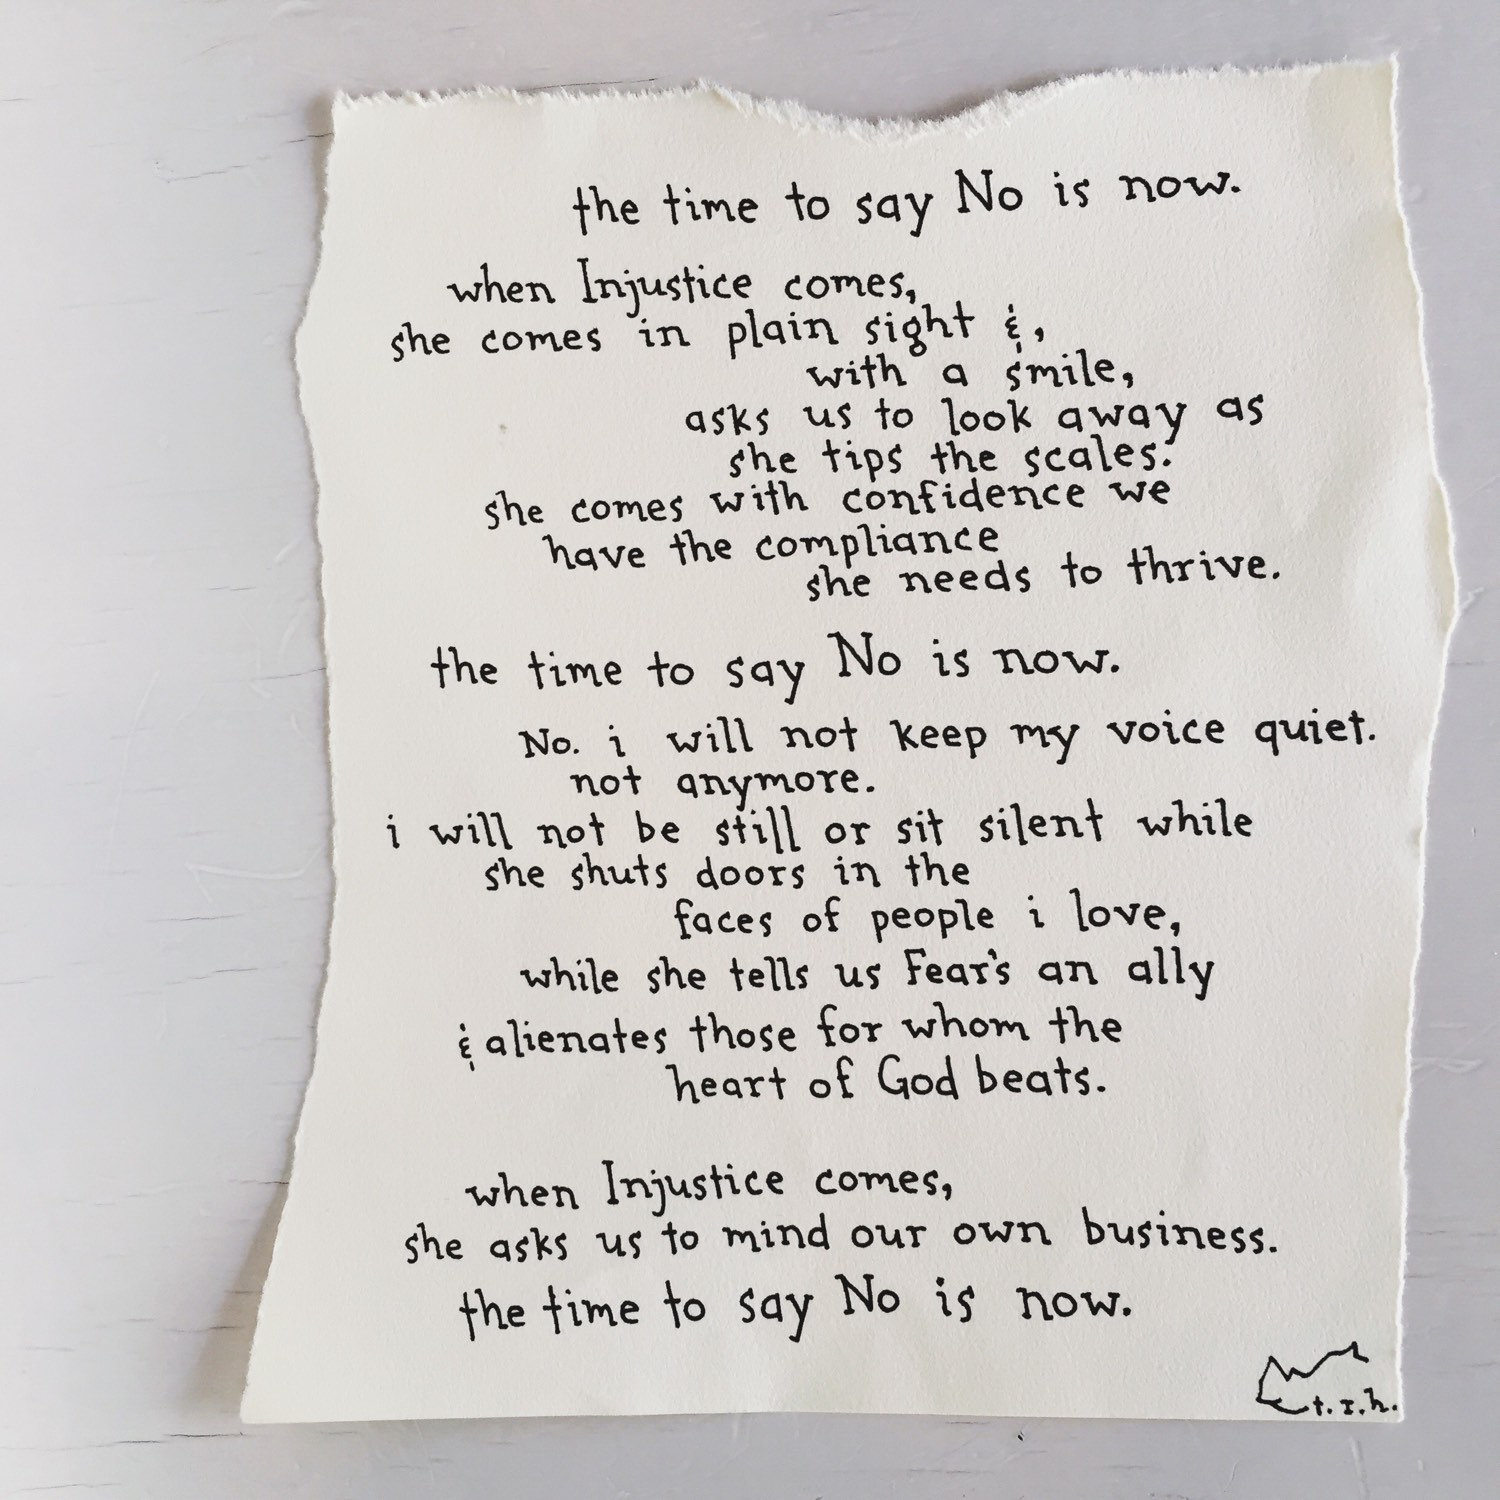 the time to say No is now.
when Injustice comes,
she comes in plain sight &,
with a smile,
asks us to look away as
she tips the scales.
she comes with confidence we
have the compliance
she needs to thrive.
the time to say No is now.
No. i will not keep my voice quiet.
not anymore.
i will not be still or sit silent while
she shuts doors in the
faces of people i love,
while she tells us Fear's an ally
& alienates those for whom the
heart of God beats.
when Injustice comes,
she asks us to mind our own business.
the time to say No is now.
t.r.h.